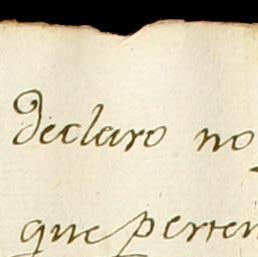 Declaro no
que perten